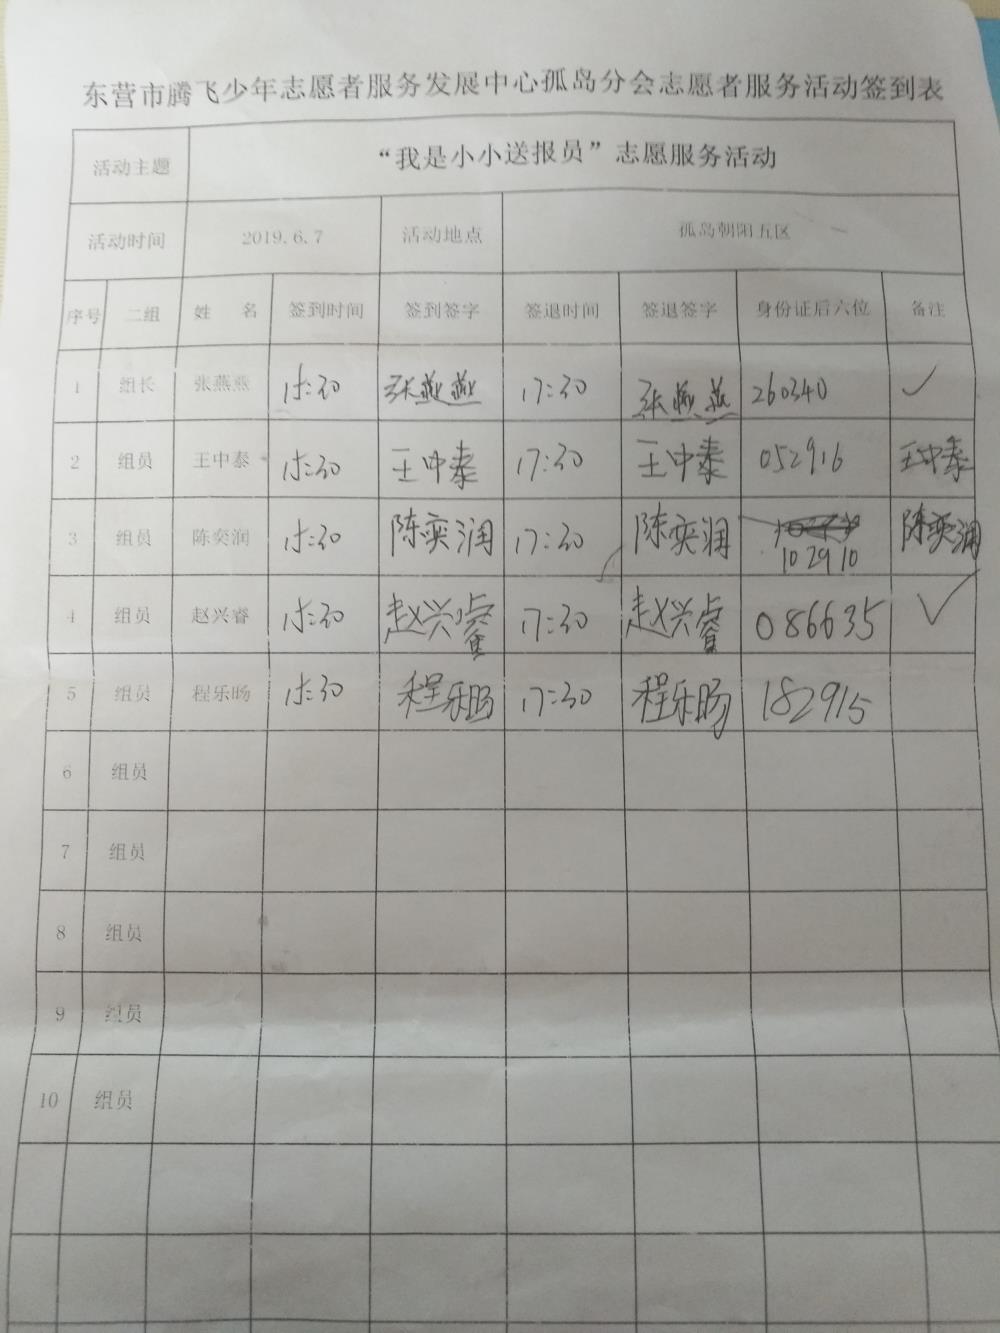 东营市腾飞少年志愿者服务发展中心孤岛分会志愿者服务活动签到表
活动主题 “我是小小送报员”志愿服务活动
活动时间 2019.6.7 活动地点 孤岛朝阳五区
序号 二组 姓 名 签到时间 签到签字 签退时间 签退签字 身份证后六位 备注
1 组长 张燕燕 15:30 张燕燕 17:30 张燕燕 260340 ✓
2 组员 王中泰 15:30 王中泰 17:30 王中泰 052916 王中泰
3 组员 陈奕润 15:30 陈奕润 17:30 陈奕润 102910 陈奕润
4 组员 赵兴睿 15:30 赵兴睿 17:30 赵兴睿 086635 ✓
5 组员 程乐旸 15:30 程乐旸 17:30 程乐旸 182915
6 组员
7 组员
8 组员
9 组员
10 组员